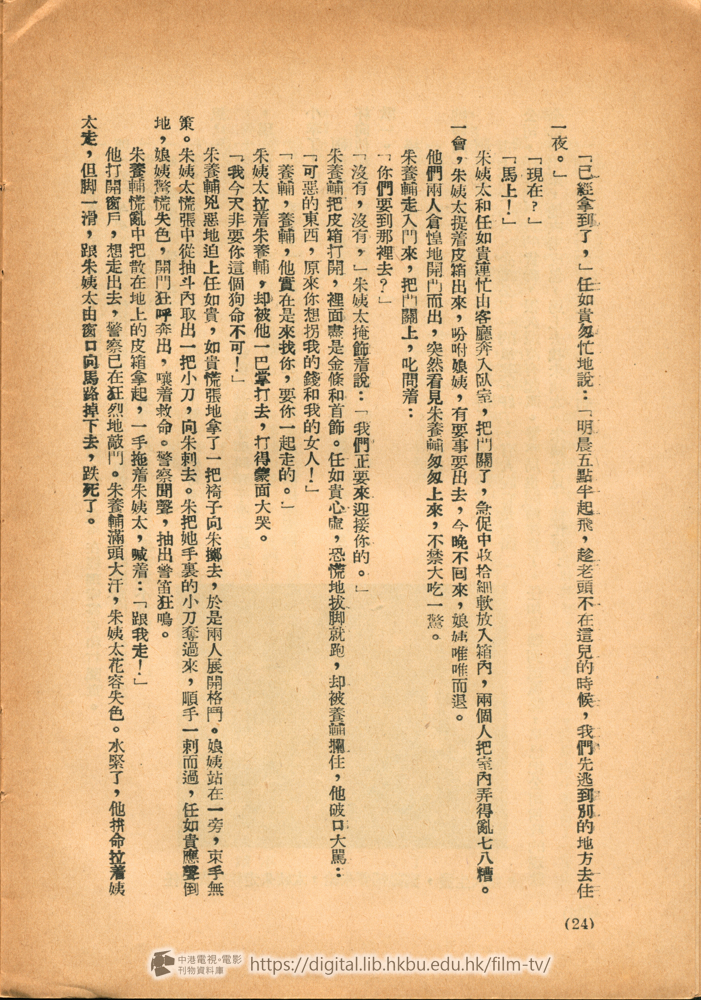 「已經拿到了，」任如貴匆忙地說：「明晨五點半起飛，趁老頭不在這兒的時候，我們先逃到別的地方去住
一夜。」
「現在？」
「馬上！」
朱姨太和任如貴連忙由客廳奔入臥室，把門關了，急促中收拾細軟放入箱內，兩個人把室內弄得亂七八糟。
一會，朱姨太提着皮箱出來，吩咐娘姨，有要事要出去，今晚不回來，娘姨唯唯而退。
他們兩人倉惶地開門而出，突然看見朱養輔匆匆上來，不禁大吃一驚。
朱養輔走入門來，把門關上，叱問着：
「你們要到那裡去？」
「沒有，沒有，」朱姨太掩飾着說：「我們正要來迎接你的。」
朱養輔把皮箱打開，裡面盡是金條和首飾。任如貴心虛，恐慌地拔脚就跑，却被養輔攔住，他破口大罵：
「可惡的東西，原來你想拐我的錢和我的女人！」
「養輔，養輔，他實在是來找你，要你一起走的。」
朱姨太拉着朱養輔，却被他一巴掌打去，打得蒙面大哭。
「我今天非要你這個狗命不可！」
朱養輔兇惡地迫上任如貴，如貴慌張地拿了一把椅子向朱擲去，於是兩人展開格鬥。娘姨站在一旁，束手無
策。朱姨太慌張中從抽斗內取出一把小刀，向朱刺去。朱把她手裏的小刀奪過來，順手一刺而過，任如貴應聲倒
地，娘姨驚慌失色，開門狂呼奔出，嚷着救命。警察聞聲，抽出警笛狂鳴。
朱養輔慌亂中把散在地上的皮箱拿起，一手拖着朱姨太，喊着：「跟我走！」
他打開窗戶，想走出去，警察已在狂烈地敲門。朱養輔滿頭大汗，朱姨太花容失色。水緊了，他拼命拉着姨
太走，但脚一滑，跟朱姨太由窗口向馬路掉下去，跌死了。
(24)
中港電視·電影
刊物資料庫
https://digital.lib.hkbu.edu.hk/film-tv/